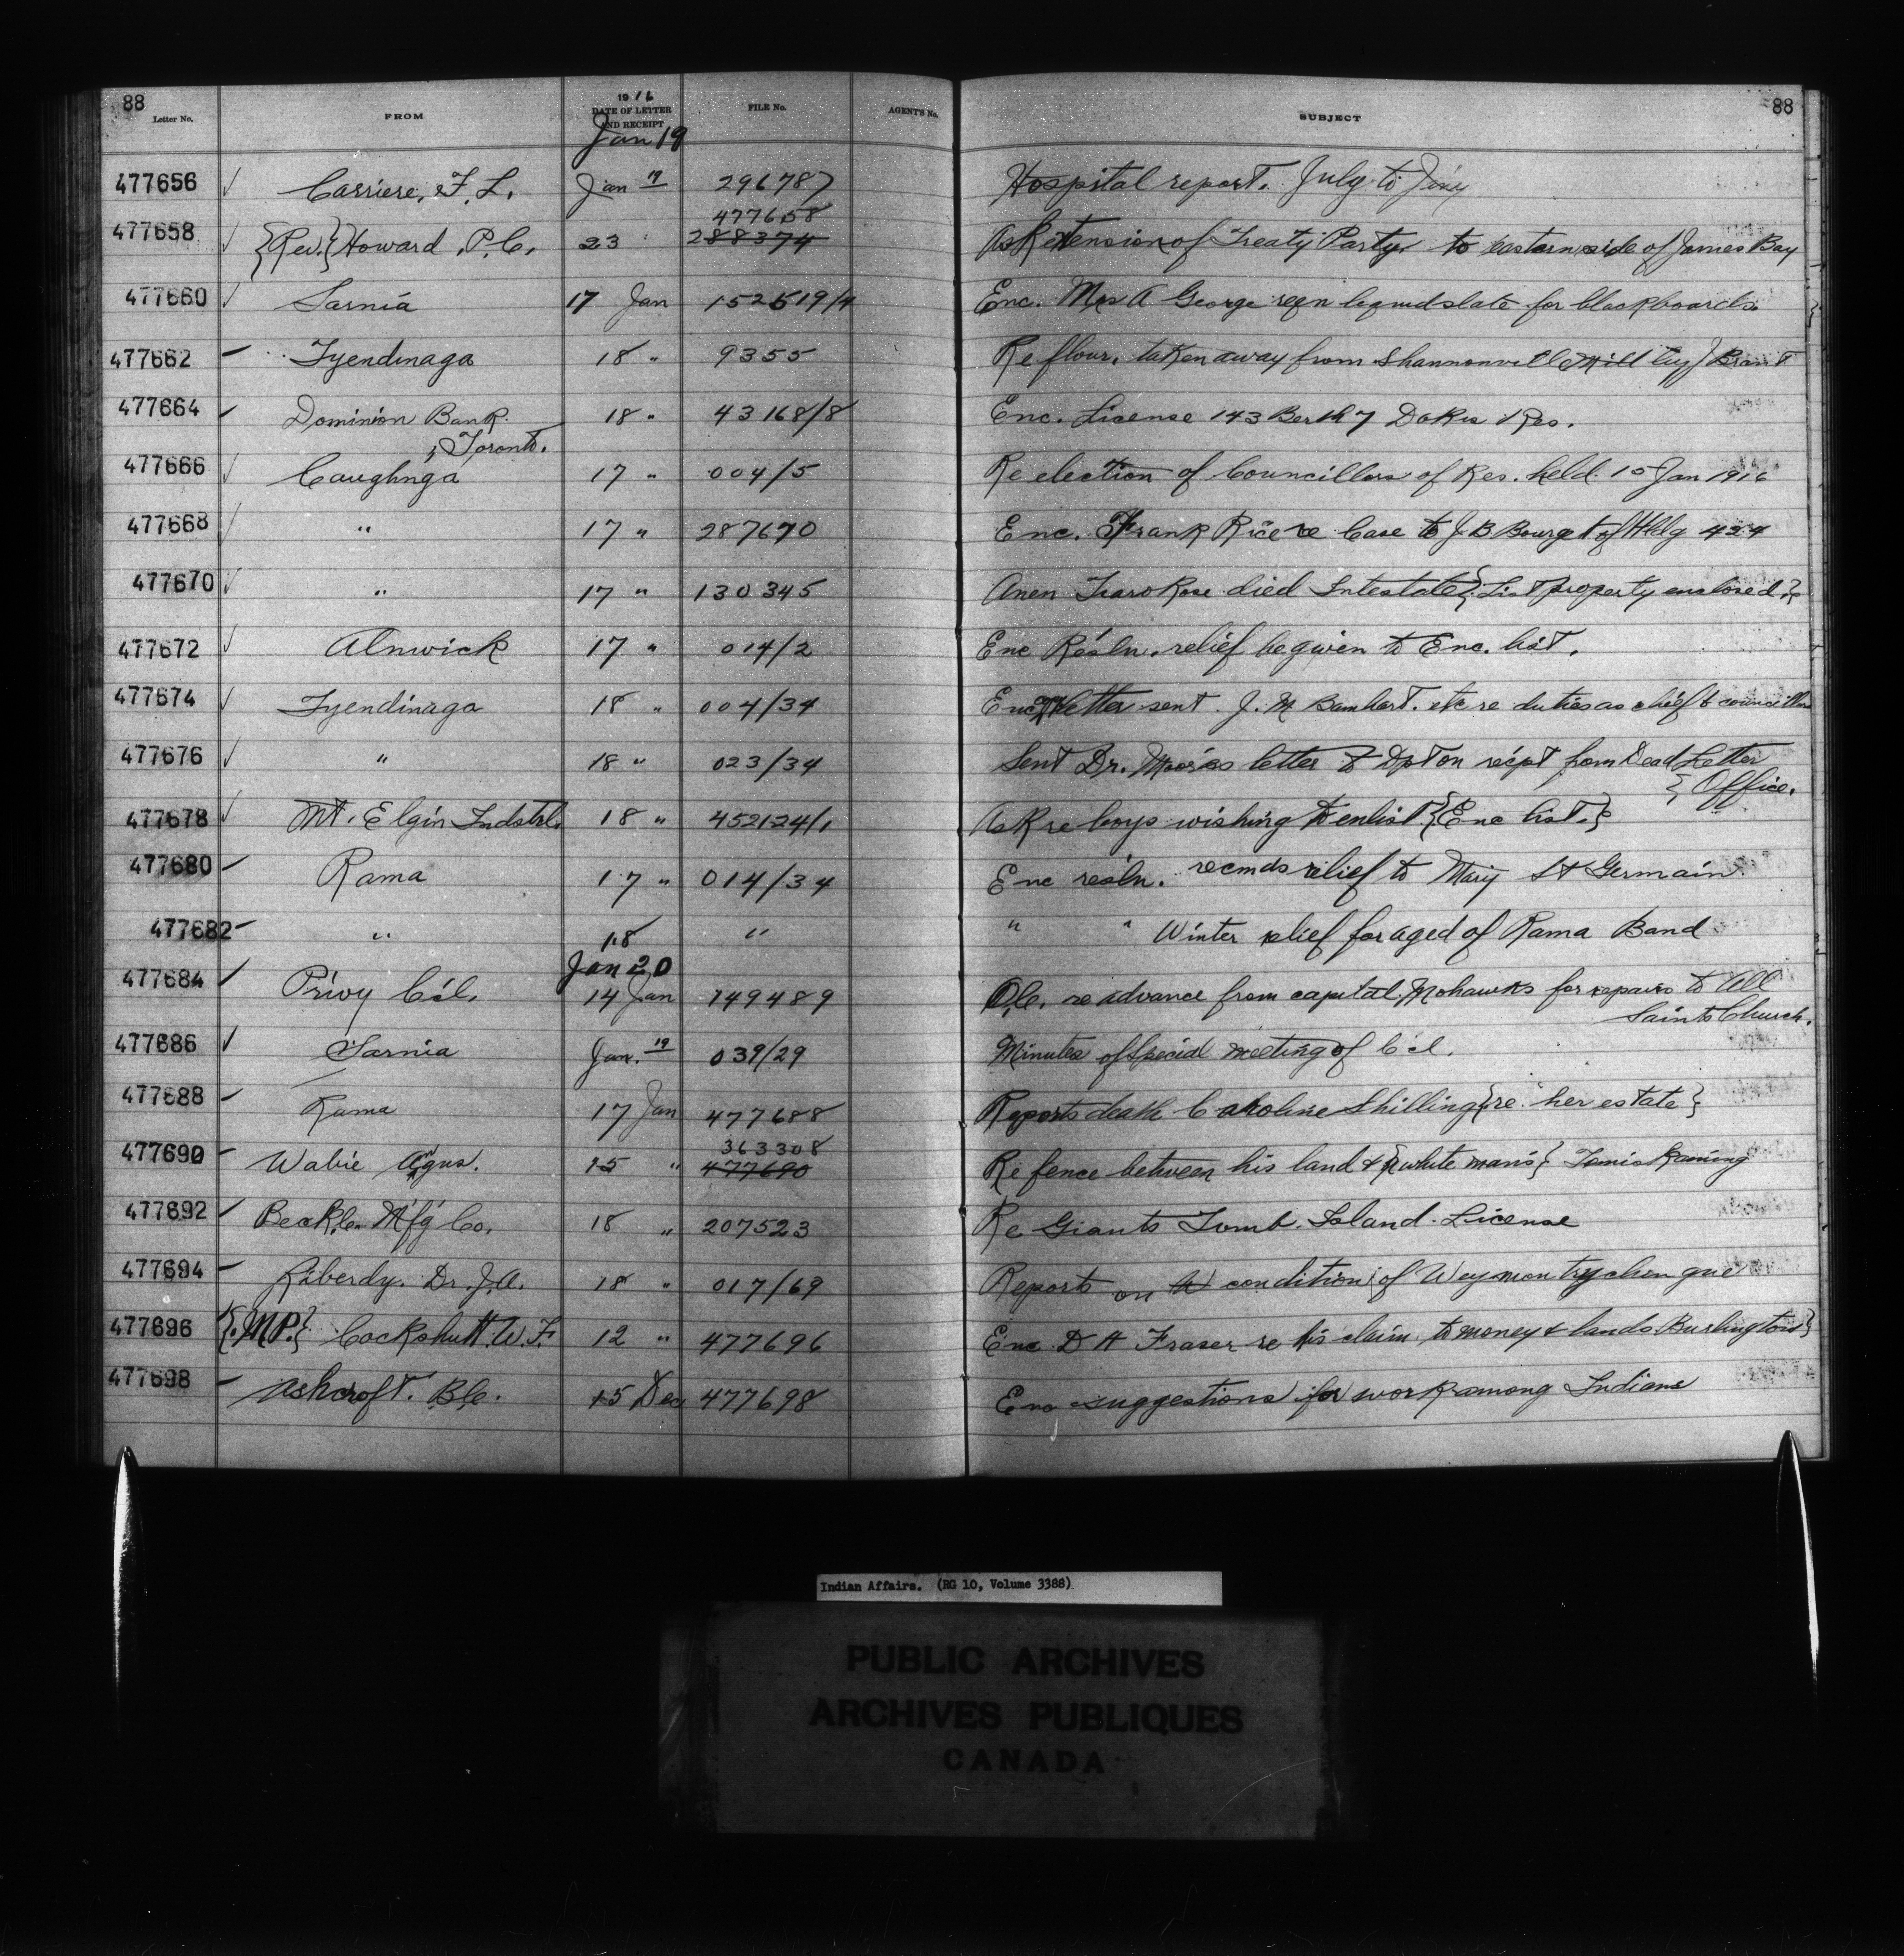 88 88
Letter No. FROM 1916 DATE OF LETTER AND RECEIPT FILE No. AGENT'S No. SUBJECT
Jan 19
477656 Carriere, F. L. Jan 19 296787 Hospital report. July to Jany
477658
477658 {Rev.} Howard, P.C. 23 " 288374 Ask extension of Treaty Party to eastern side of James Bay
477660 Sarnia 17 Jan 152519/4 Enc. Mrs A George reqn liquid slate for blackboards
477662 Tyendinaga 18 " 9355 Re flour, taken away from Shannonville Mill by J Brant
477664 Dominion Bank 18 " 43168/8 Enc. License 143 Berth 7 Dokis Res.
, Toronto.
477666 Caughnga 17 " 004/5 Re election of Councillors of Res. held 10 Jan 1916
477668 " 17 " 287670 Enc. Frank Rice re Case to J B Bourget of Hldg 424
477670 " 17 " 130345 Anen died Intestate {List property enclosed.}
477672 Alnwick 17 " 014/2 Enc Resln. relief be given to Enc. list.
477674 Tyendinaga 18 " 004/34 Enc letter sent J. M Barnhart. etc re duties as chief & councillor
477676 " 18 " 023/34 Sent Dr. Moores letter to Dpt on recpt from Dead Letter
} Office.
477678 Mt. Elgin Indstrl. 18 " 452124/1 Ask re boys wishing to enlist {Enc list.}
477680 Rama 17 " 014/34 Enc resln. recmds relief to Mary St Germain
477682 " 18 " " " Winter relief for aged of Rama Band
Jan 20
477684 Privy C'cl. 14 Jan 149489 O.C. re advance from capital Mohawks for repairs to All
Saints Church.
477686 Sarnia Jan. 19 039/29 Minutes of Special meeting of C'cl.
477688 Rama 17 Jan 477688 Reports death Caroline Shilling {re her estate}
363308
477690 Wabie Agnus. 15 " 477690 Re fence between his land & {white man's} Temiskaming
477692 Beck Mfg Co. 18 " 207523 Re Giants Tomb. Island. License
477694 Liberdy. Dr. J.A. 18 " 017/69 Reports on condition of Weymontychengue
477696 {.MP.} Cockshutt. W. F. 12 " 477696 Enc D H Fraser re his claim to money & lands Burlington}
477698 Ashcroft. B.C. 15 Dec 477698 Enc suggestions for work among Indians
Indian Affairs. (RG 10, Volume 3388)
PUBLIC ARCHIVES
ARCHIVES PUBLIQUES
CANADA